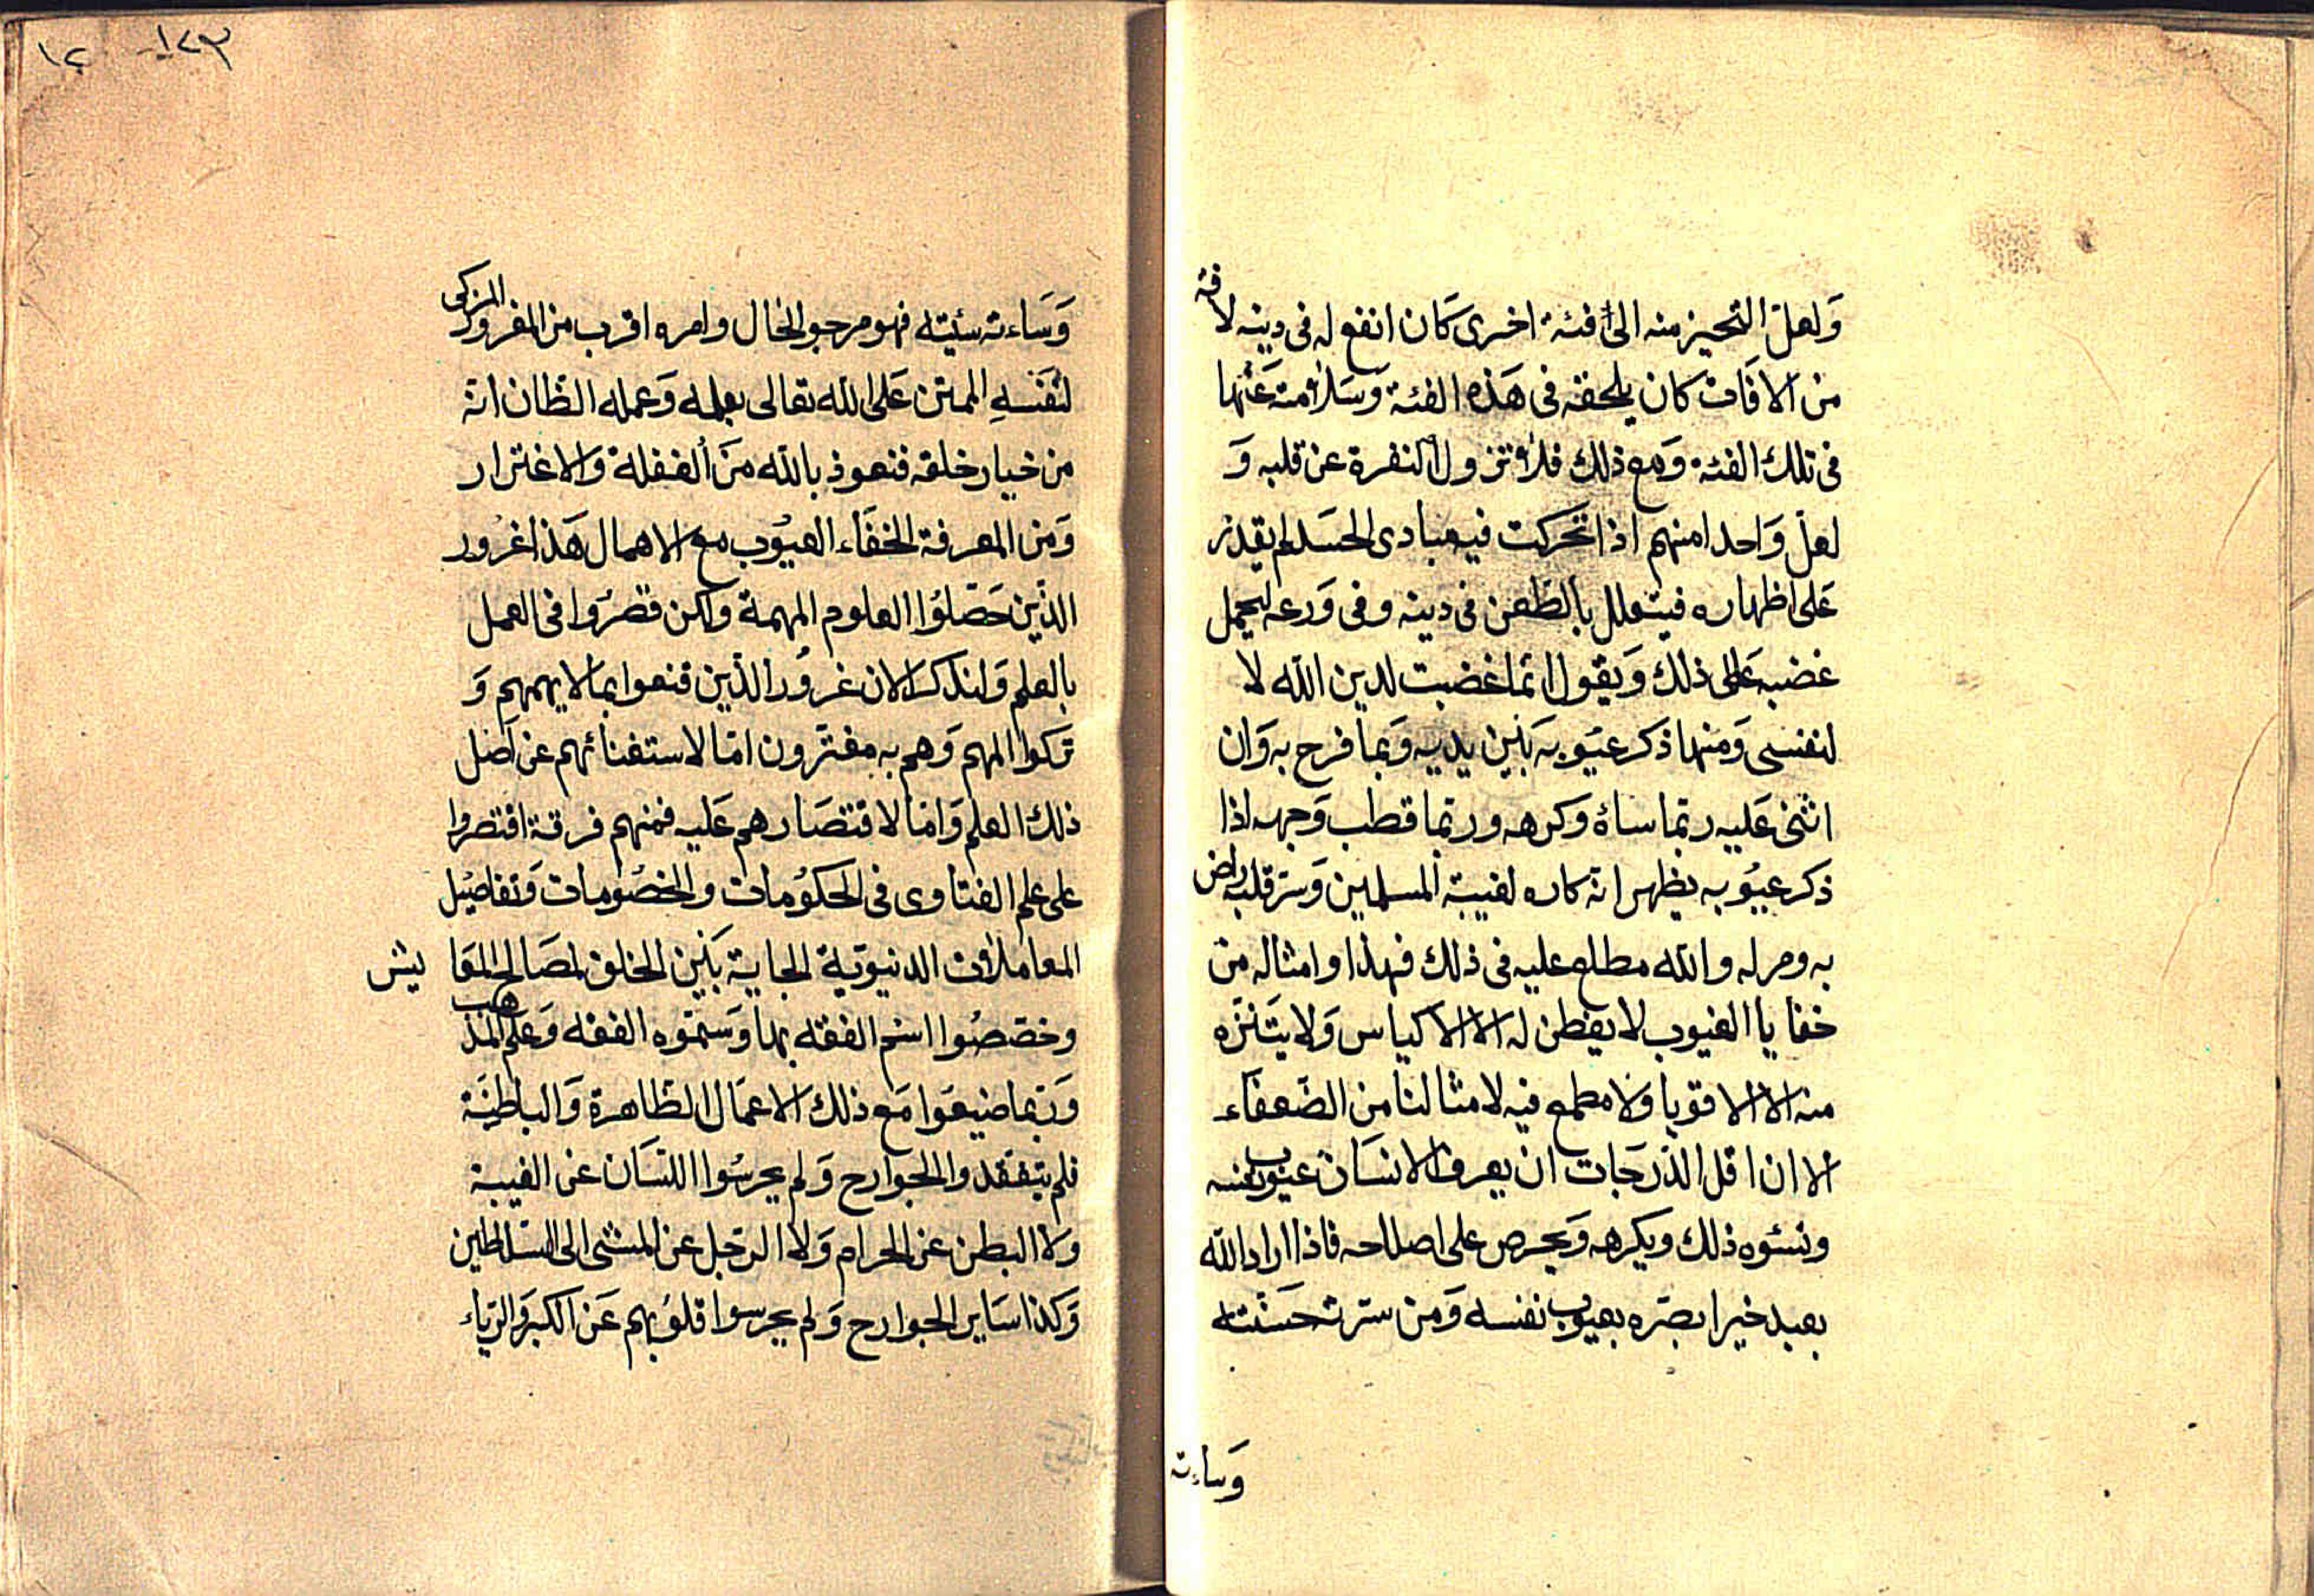 ولعل التحيز منه الى فئة اخرى كان انفع له فى دينه لافة
من الافات كان يلحقه فى هذه الفئة وسلامته عنها
فى تلك الفئة ومع ذلك فلا تزول النفرة عن قلبه و
لعل واحدا منهم اذا تحركت فيه مبادى الحسد لم يقدر
على اظهاره فيتعلل بالطعن فى دينه وفى ورعه ليحمل
غضبه على ذلك ويقول انما غضبت لدين الله لا
لنفسى ومنها ذكر عيوبه بين يديه ربما فرح به وان
اثنى عليه ربما ساءه وكرهه وربما قطب وجهه اذا
ذكر عيوبه يظهر انه كاره لغيبة المسلمين وستر قلبه راض
به ومر له والله مطلع عليه فى ذلك فهذا وامثاله من
خفايا العيوب لا يفطن له الا الاكياس ولا يتنزه
منه الا الاقويا ولا مطمع فيه لامثالنا من الضعفاء
الا ان اقل الدرجات ان يعرف الانسان عيوب نفسه
ونسئوه ذلك ويكرهه ويحرص على اصلاحه فاذا اراد الله
بعبد خيرا بصره بعيوب نفسه ومن سرته حسنته
وساءته
١٢٣ ١٢
وساءته سئيته فهو مرجو الحال وامره اقرب من المغرور المزكى
لنفسه الممتن على الله تعالى بعلمه وعمله الظان انه
من خيار خلقه فنعوذ بالله من الغفلة والاغترار
ومن المعرفة الخفاء العيوب مع الاهمال هذا غرور
الذين حصلوا العلوم المهمة ولكن قصروا فى العمل
بالعلم ولنذكر الان غرور الذين قنعوا بما لا يهمهم و
تركوا المهم وهم به مغترون اما لاستغنائهم عن اصل
ذلك العلم واما لاقتصارهم عليه فمنهم فرقة اقتصروا
على علم الفتاوى فى الحكومات والخصومات وتفاصيل
المعاملات الدنيوية الجاية بين الخلق لمصالح المعا يش
وخصصوا اسم الفقه بها وسموه الفقه وعلم المذهب
وربما ضيعوا مع ذلك الاعمال الظاهرة والباطنة
فلم يتفقدوا الجوارح ولم يحرسوا اللسان عن الغيبة
ولا البطن عن الحرام ولا الرجل عن المشى الى السلاطين
وكذا ساير الجوارح ولم يحرسوا قلوبهم عن الكبر والرياء